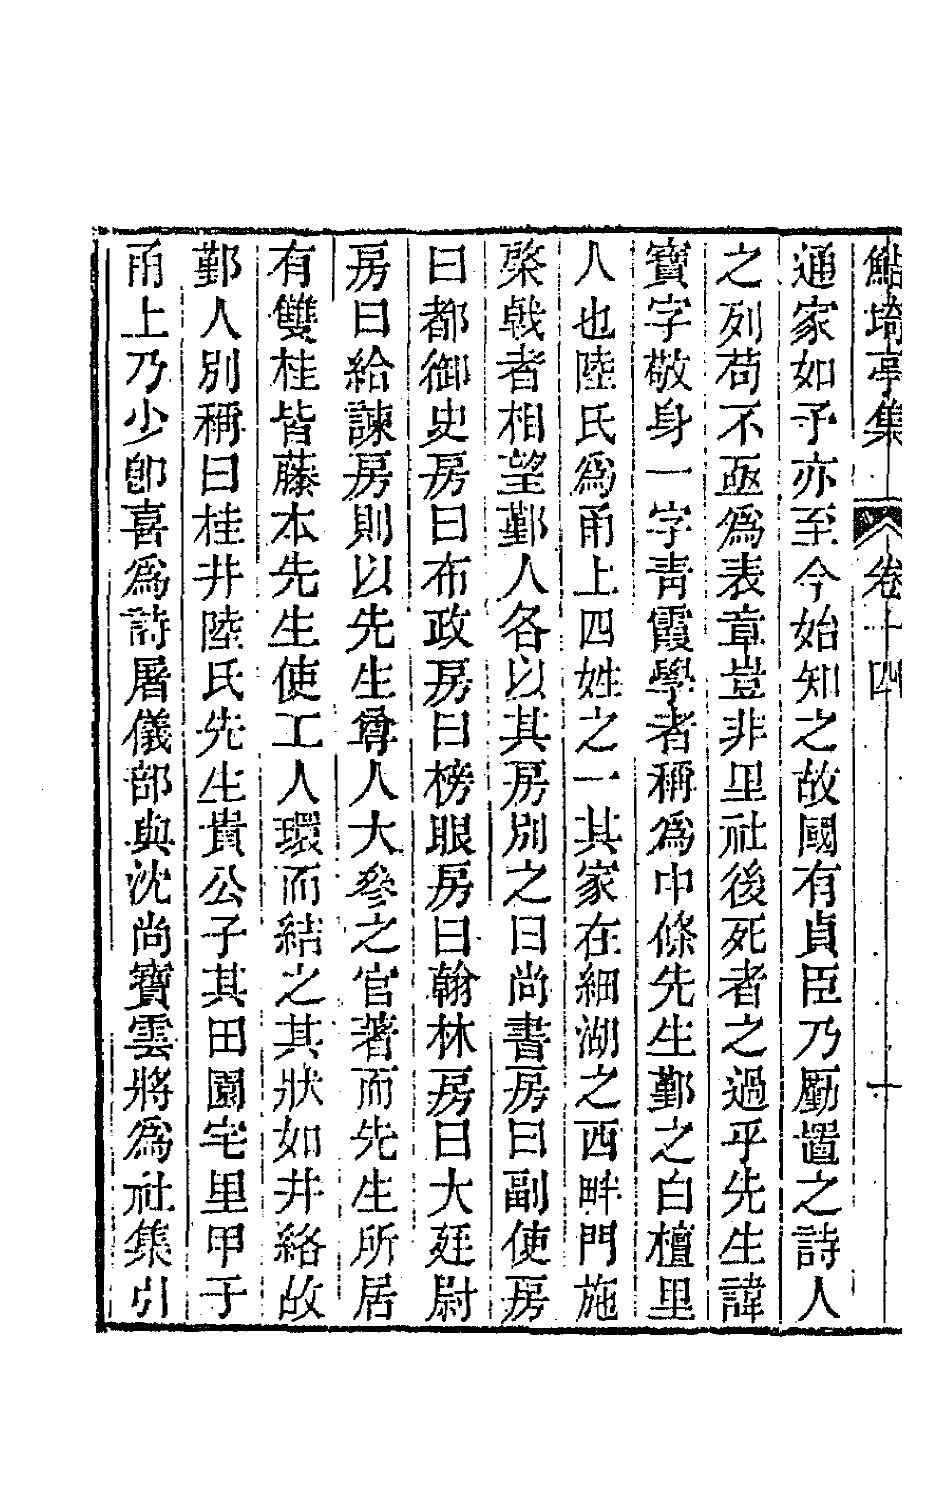 鮚埼亭集 卷十四 十
通家如予亦至今始知之故國有貞臣乃厪置之詩人
之列苟不亟爲表章豈非里社後死者之過乎先生諱
寶字敬身一字靑霞學者稱爲中條先生鄞之白檀里
人也陸氏爲甬上四姓之一其家在細湖之西畔門施
棨戟者相望鄞人各以其房別之曰尚書房曰副使房
曰都御史房曰布政房曰榜眼房曰翰林房曰大廷尉
房曰給諫房則以先生尊人大參之官著而先生所居
有雙桂皆藤本先生使工人環而結之其狀如井絡故
鄞人別稱曰桂井陸氏先生貴公子其田園宅里甲于
甬上乃少卽喜爲詩屠儀部與沈尚寶雲將爲社集引